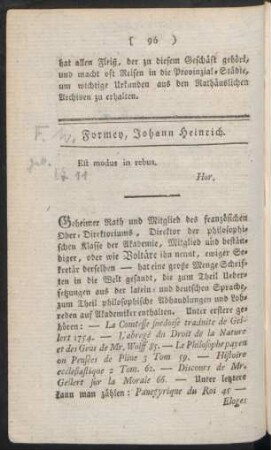 ( 96 )
hat allen Fleiß, der zu diesem Geschäft gehört,
und macht oft Reisen in die Provinzial-Städte,
um wichtige Urkunden aus den Rathäuslichen
Archiven zu erhalten.
Formey, Johann Heinrich.
Est modus in rebus.
Hor.
Geheimer Rath und Mitglied des französischen
Ober-Direktoriums, Direktor der philosophi-
schen Klasse der Akademie, Mitglied und bestän-
diger, oder wie Voltäre ihn nennt, ewiger Se-
kretär derselben — hat eine große Menge Schrif-
ten in die Welt gesandt, die zum Theil Ueber-
setzungen aus der latein- und deutschen Sprache,
zum Theil philosophische Abhandlungen und Lob-
reden auf Akademiker enthalten. Unter erstere ge-
hören: — La Comtesse suedoise traduite de Gel-
lert 1754. — L'abregé du Droit de la Nature
et des Gens de Mr. Wolff 85. — Le Philosophe payen
ou Pensées de Pline 3 Tom 59. — Histoire
ecclesiastique 2 Tom. 62. — Discours de Mr.
Gellert sur la Morale 66. — Unter letztere
kann man zählen: Panegyrique du Roi 41 —
Eloges